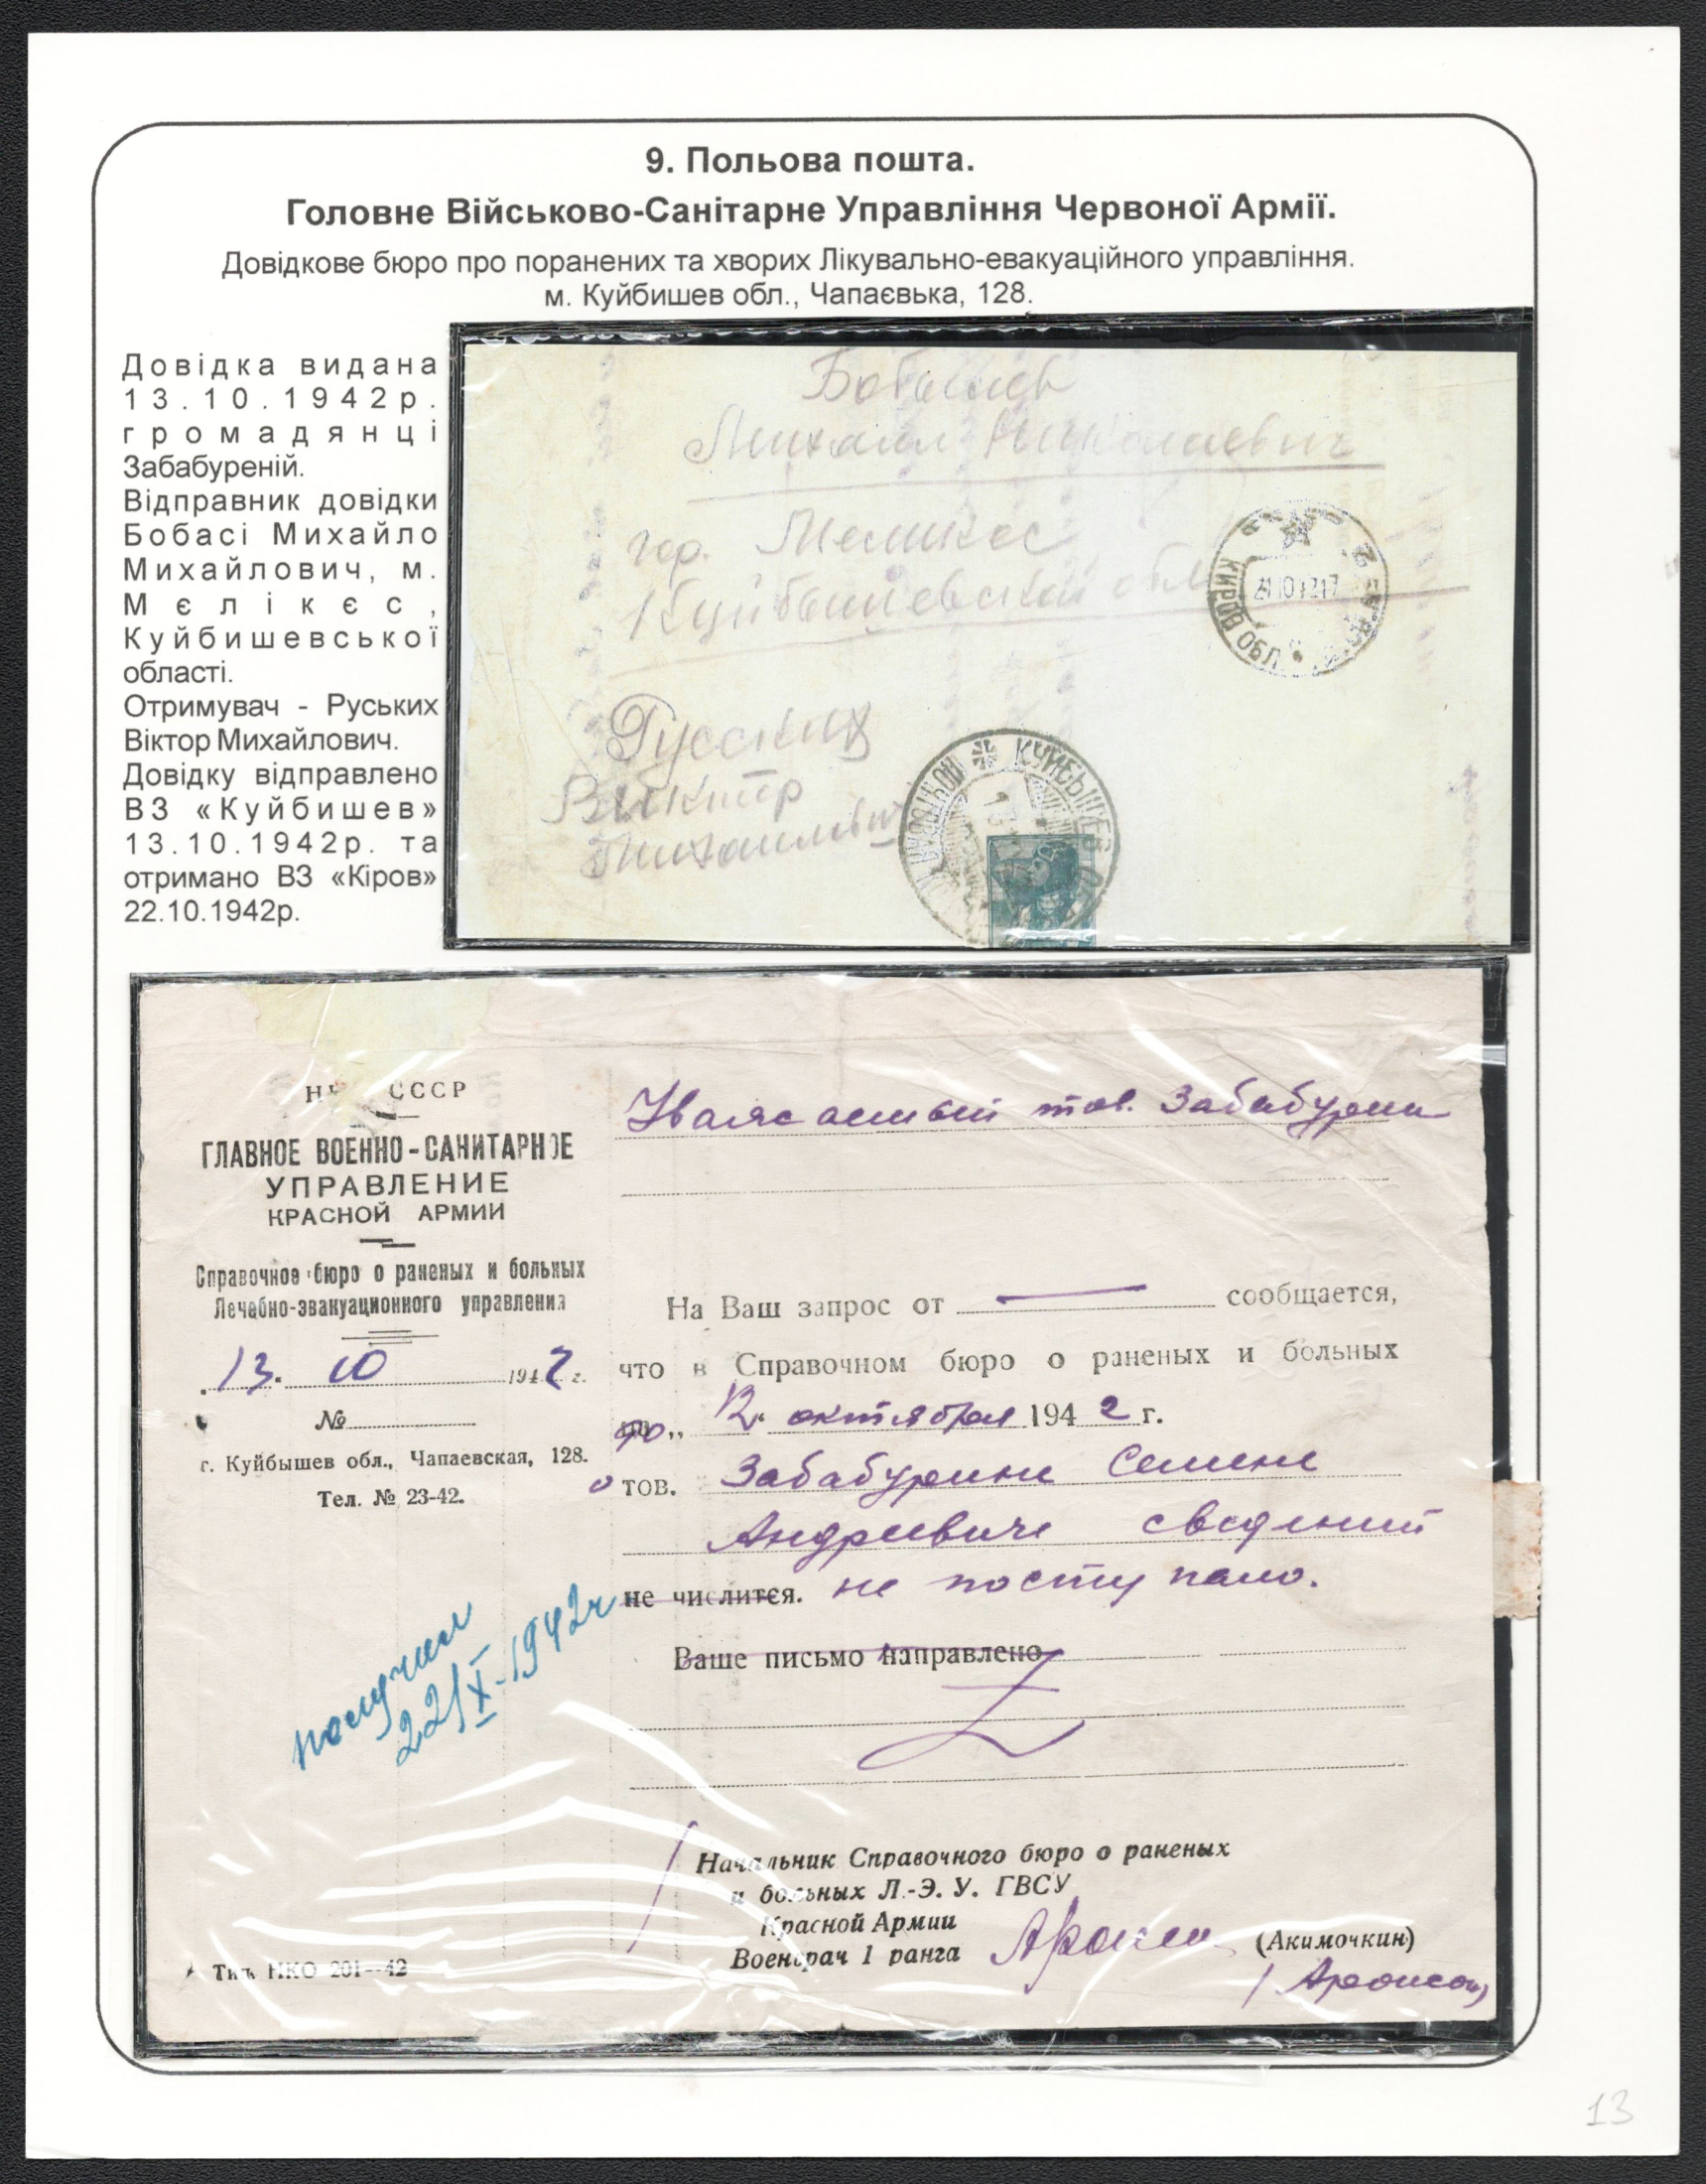 9. Польова пошта.
Головне Військово-Санітарне Управління Червоної Армії.
Довідкове бюро про поранених та хворих Лікувально-евакуаційного управління.
м. Куйбишев обл., Чапаєвька, 128.
Довідка видана
13.10.1942р.
громадянці
Забабуреній.
Відправник довідки
Бобасі Михайло
Михайлович, м.
Мєлікєс,
Куйбишевської
області.
Отримувач - Руських
Віктор Михайлович.
Довідку відправлено
ВЗ «Куйбишев»
13.10.1942р. та
отримано ВЗ «Кіров»
22.10.1942р.
Михаил Николаевич
гор. Мелекес
Куйбышевской обл
КИРОВ ОБЛ
Русских
Виктор
Михайлович
КУЙБЫШЕВ
СССР
ГЛАВНОЕ ВОЕННО-САНИТАРНОЕ
УПРАВЛЕНИЕ
КРАСНОЙ АРМИИ
Справочное бюро о раненых и больных
Лечебно-эвакуационного управления
13. 10 1942 г.
№
г. Куйбышев обл., Чапаевская, 128.
Тел. № 23-42.
получил
22/X-1942г
Тип. НКО 201—42
Уважаемый тов. Забабурин
На Ваш запрос от — сообщается,
что в Справочном бюро о раненых и больных
до „12“ октября 1942 г.
о тов. Забабурине Семене
Андреевиче сведений
не числится. не поступало.
Ваше письмо направлено
Начальник Справочного бюро о раненых
и больных Л.-Э. У. ГВСУ
Красной Армии
Военврач 1 ранга (Акимочкин)
/Аронсон/
13